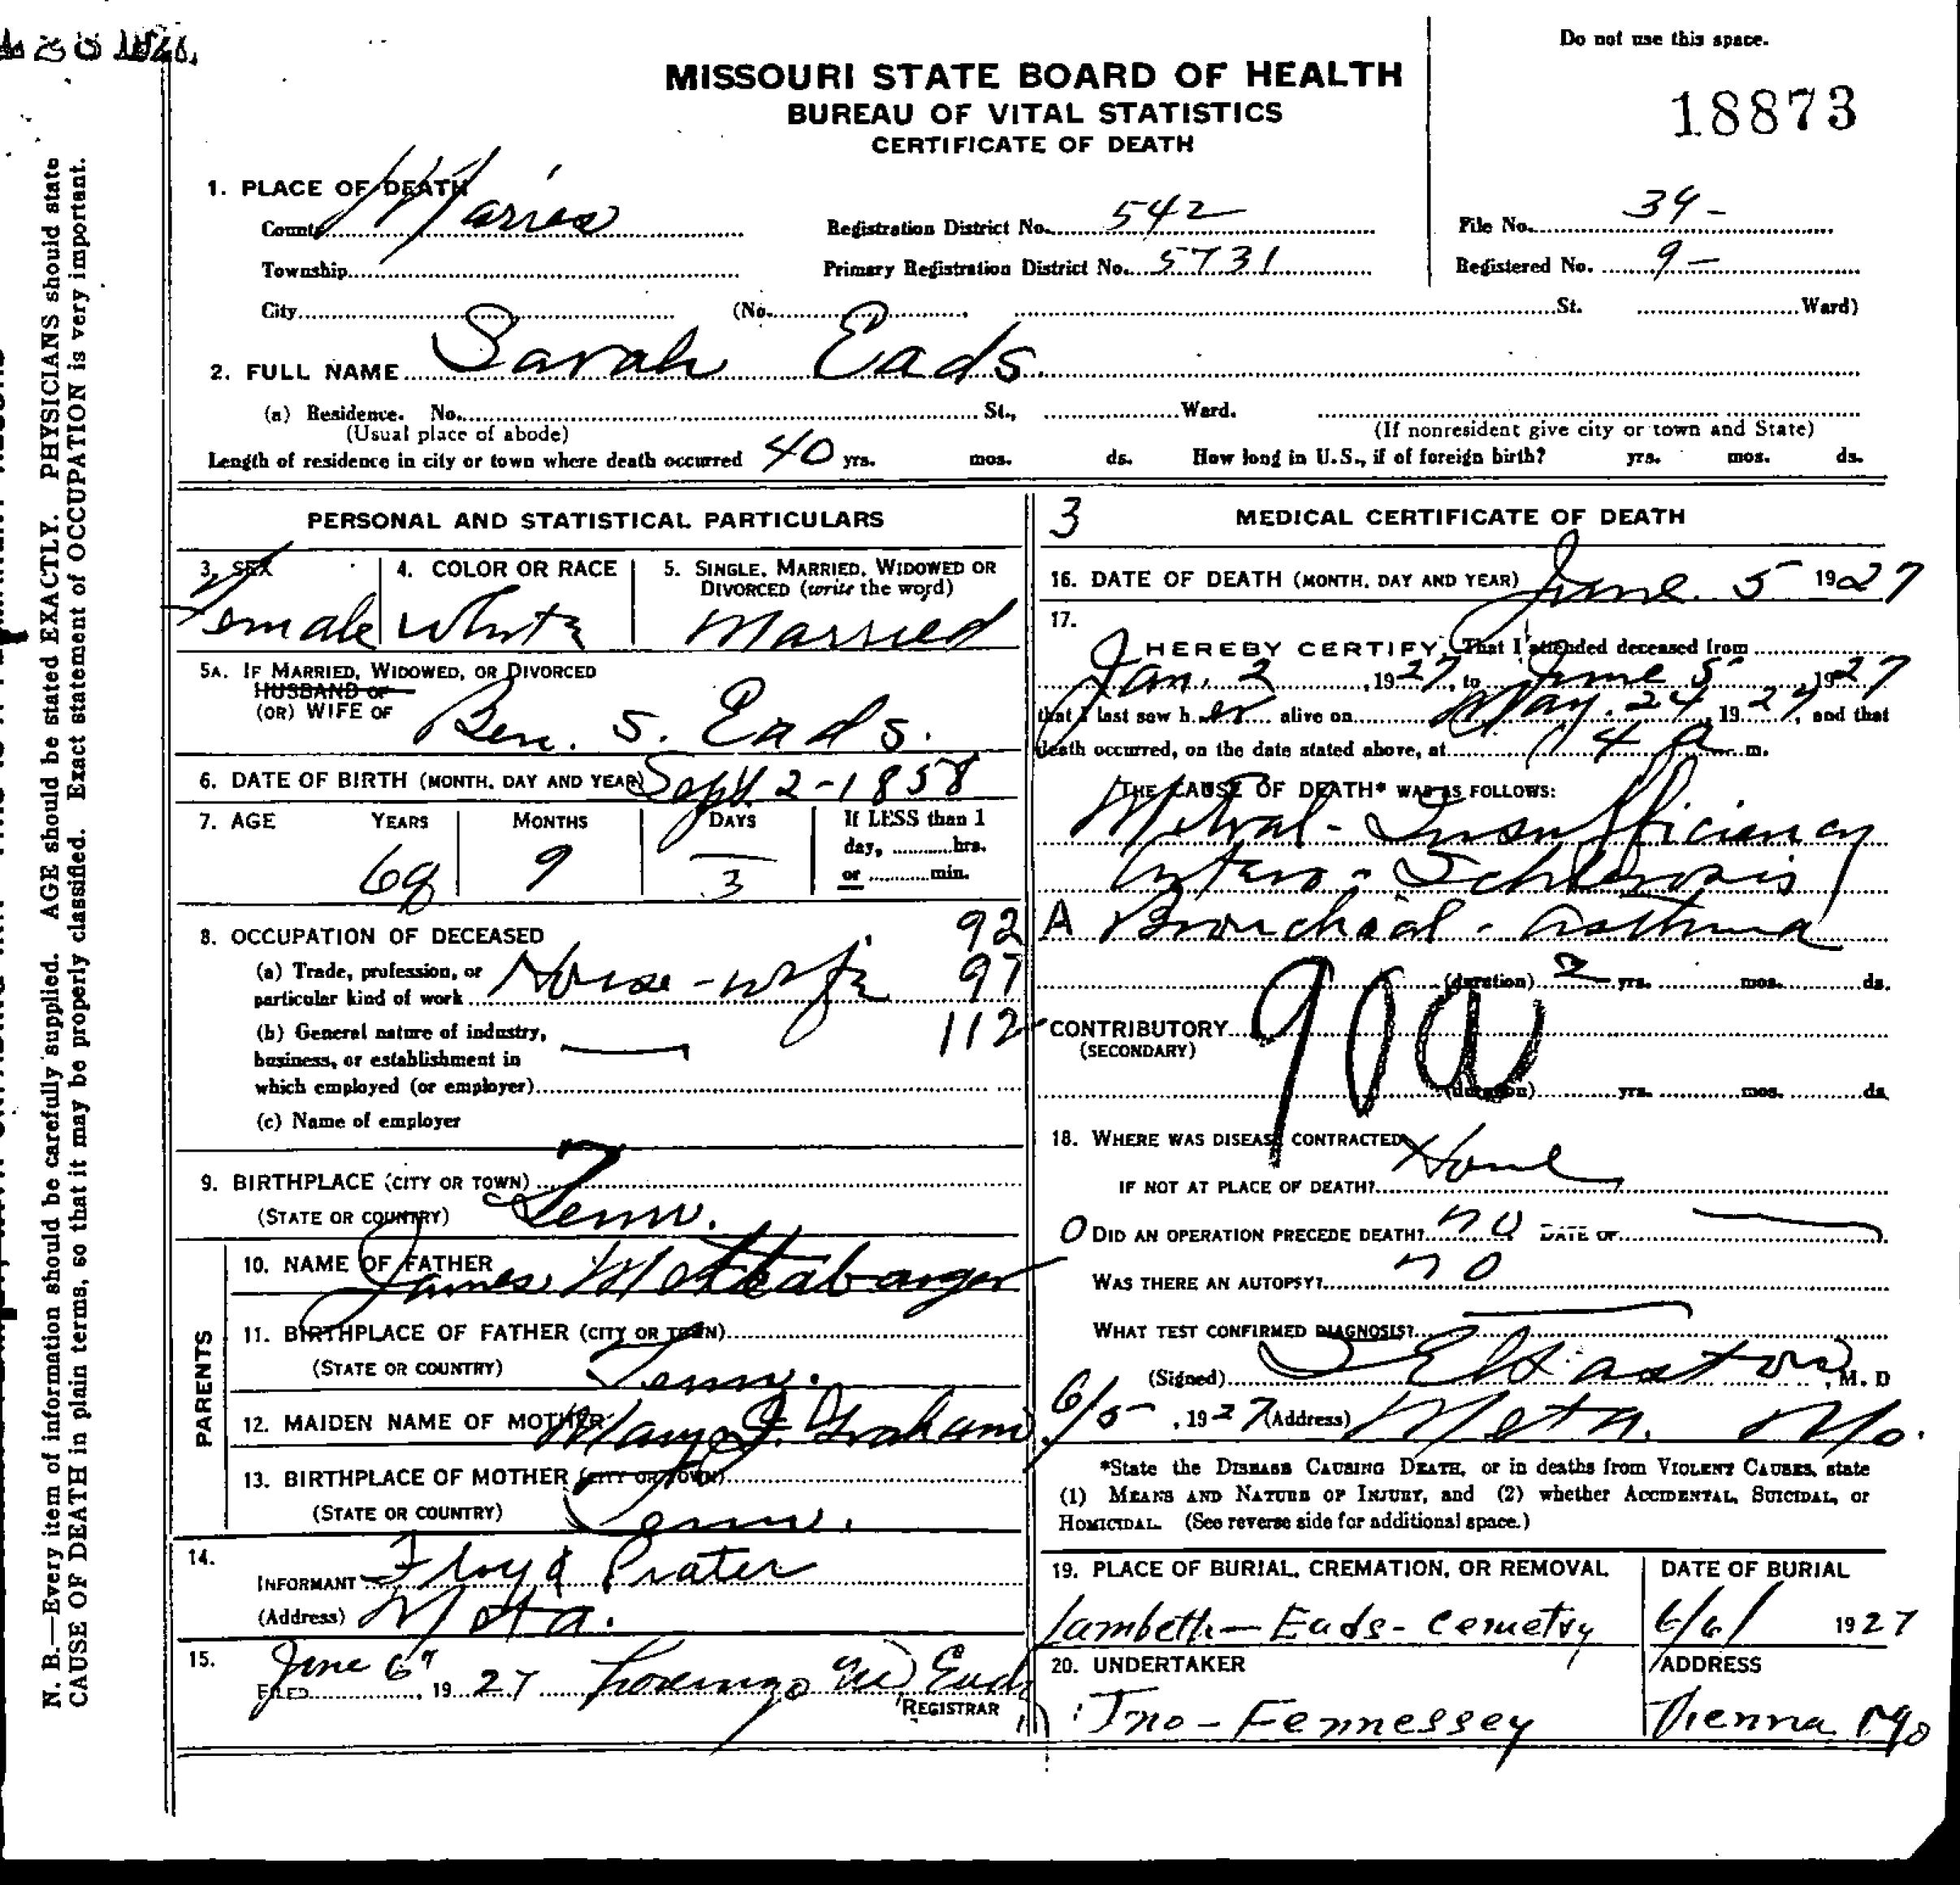 Do not use this space.
MISSOURI STATE BOARD OF HEALTH
BUREAU OF VITAL STATISTICS
CERTIFICATE OF DEATH
18873
1. PLACE OF DEATH
County Maries Registration District No. 542 File No. 34-
Township Primary Registration District No. 5731 Registered No. 9-
City (No. St. Ward)
2. FULL NAME Sarah Eads.
(a) Residence. No. St., Ward.
(Usual place of abode) (If nonresident give city or town and State)
Length of residence in city or town where death occurred 40 yrs. mos. ds. How long in U.S., if of foreign birth? yrs. mos. ds.
PERSONAL AND STATISTICAL PARTICULARS
3. SEX 4. COLOR OR RACE 5. SINGLE, MARRIED, WIDOWED OR DIVORCED (write the word)
Female White Married
5A. IF MARRIED, WIDOWED, OR DIVORCED
HUSBAND OF
(OR) WIFE OF Ben. S. Eads.
6. DATE OF BIRTH (MONTH, DAY AND YEAR) Sept. 2-1858
7. AGE YEARS MONTHS DAYS If LESS than 1
day, hrs.
or min.
9 3
8. OCCUPATION OF DECEASED 92
(a) Trade, profession, or
particular kind of work House-wife 97
(b) General nature of industry, 112
business, or establishment in
which employed (or employer)
(c) Name of employer
9. BIRTHPLACE (CITY OR TOWN)
(STATE OR COUNTRY) Tenn.
PARENTS
10. NAME OF FATHER James
11. BIRTHPLACE OF FATHER (CITY OR TOWN)
(STATE OR COUNTRY) Tenn.
12. MAIDEN NAME OF MOTHER Mary J. Graham.
13. BIRTHPLACE OF MOTHER (CITY OR TOWN)
(STATE OR COUNTRY) Tenn.
14.
INFORMANT Floyd Prater
(Address) Meta.
15.
FILED June 6th, 1927 Lorenzo W Eads
REGISTRAR
3 MEDICAL CERTIFICATE OF DEATH
16. DATE OF DEATH (MONTH, DAY AND YEAR) June. 5 1927
17.
I HEREBY CERTIFY, That I attended deceased from
Jan. 2, 1927, to June 5, 1927
that I last saw her alive on May. 24, 1927, and that
death occurred, on the date stated above, at 4 a m.
THE CAUSE OF DEATH* WAS AS FOLLOWS:
Mitral-Insufficiency
A Bronchial-asthma
(duration) 2 yrs. mos. ds.
CONTRIBUTORY 90a
(SECONDARY)
(duration) yrs. mos. ds.
18. WHERE WAS DISEASE CONTRACTED Home
IF NOT AT PLACE OF DEATH?
O DID AN OPERATION PRECEDE DEATH? no DATE OF
WAS THERE AN AUTOPSY? no
WHAT TEST CONFIRMED DIAGNOSIS?
(Signed) , M. D
6/5, 1927 (Address) Meta. Mo.
*State the DISEASE CAUSING DEATH, or in deaths from VIOLENT CAUSES, state
(1) MEANS AND NATURE OF INJURY, and (2) whether ACCIDENTAL, SUICIDAL, or
HOMICIDAL. (See reverse side for additional space.)
19. PLACE OF BURIAL, CREMATION, OR REMOVAL DATE OF BURIAL
Lambeth-Eads-Cemetry 6/6/ 1927
20. UNDERTAKER ADDRESS
Jno-Fennessey Vienna Mo
N. B.—Every item of information should be carefully supplied. AGE should be stated EXACTLY. PHYSICIANS should state
CAUSE OF DEATH in plain terms, so that it may be properly classified. Exact statement of OCCUPATION is very important.